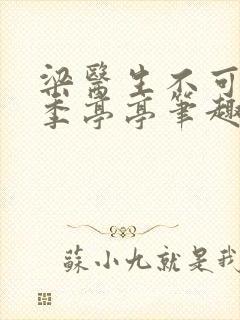 梁醫生不可
季亭亭筆趣
蘇小九就是我